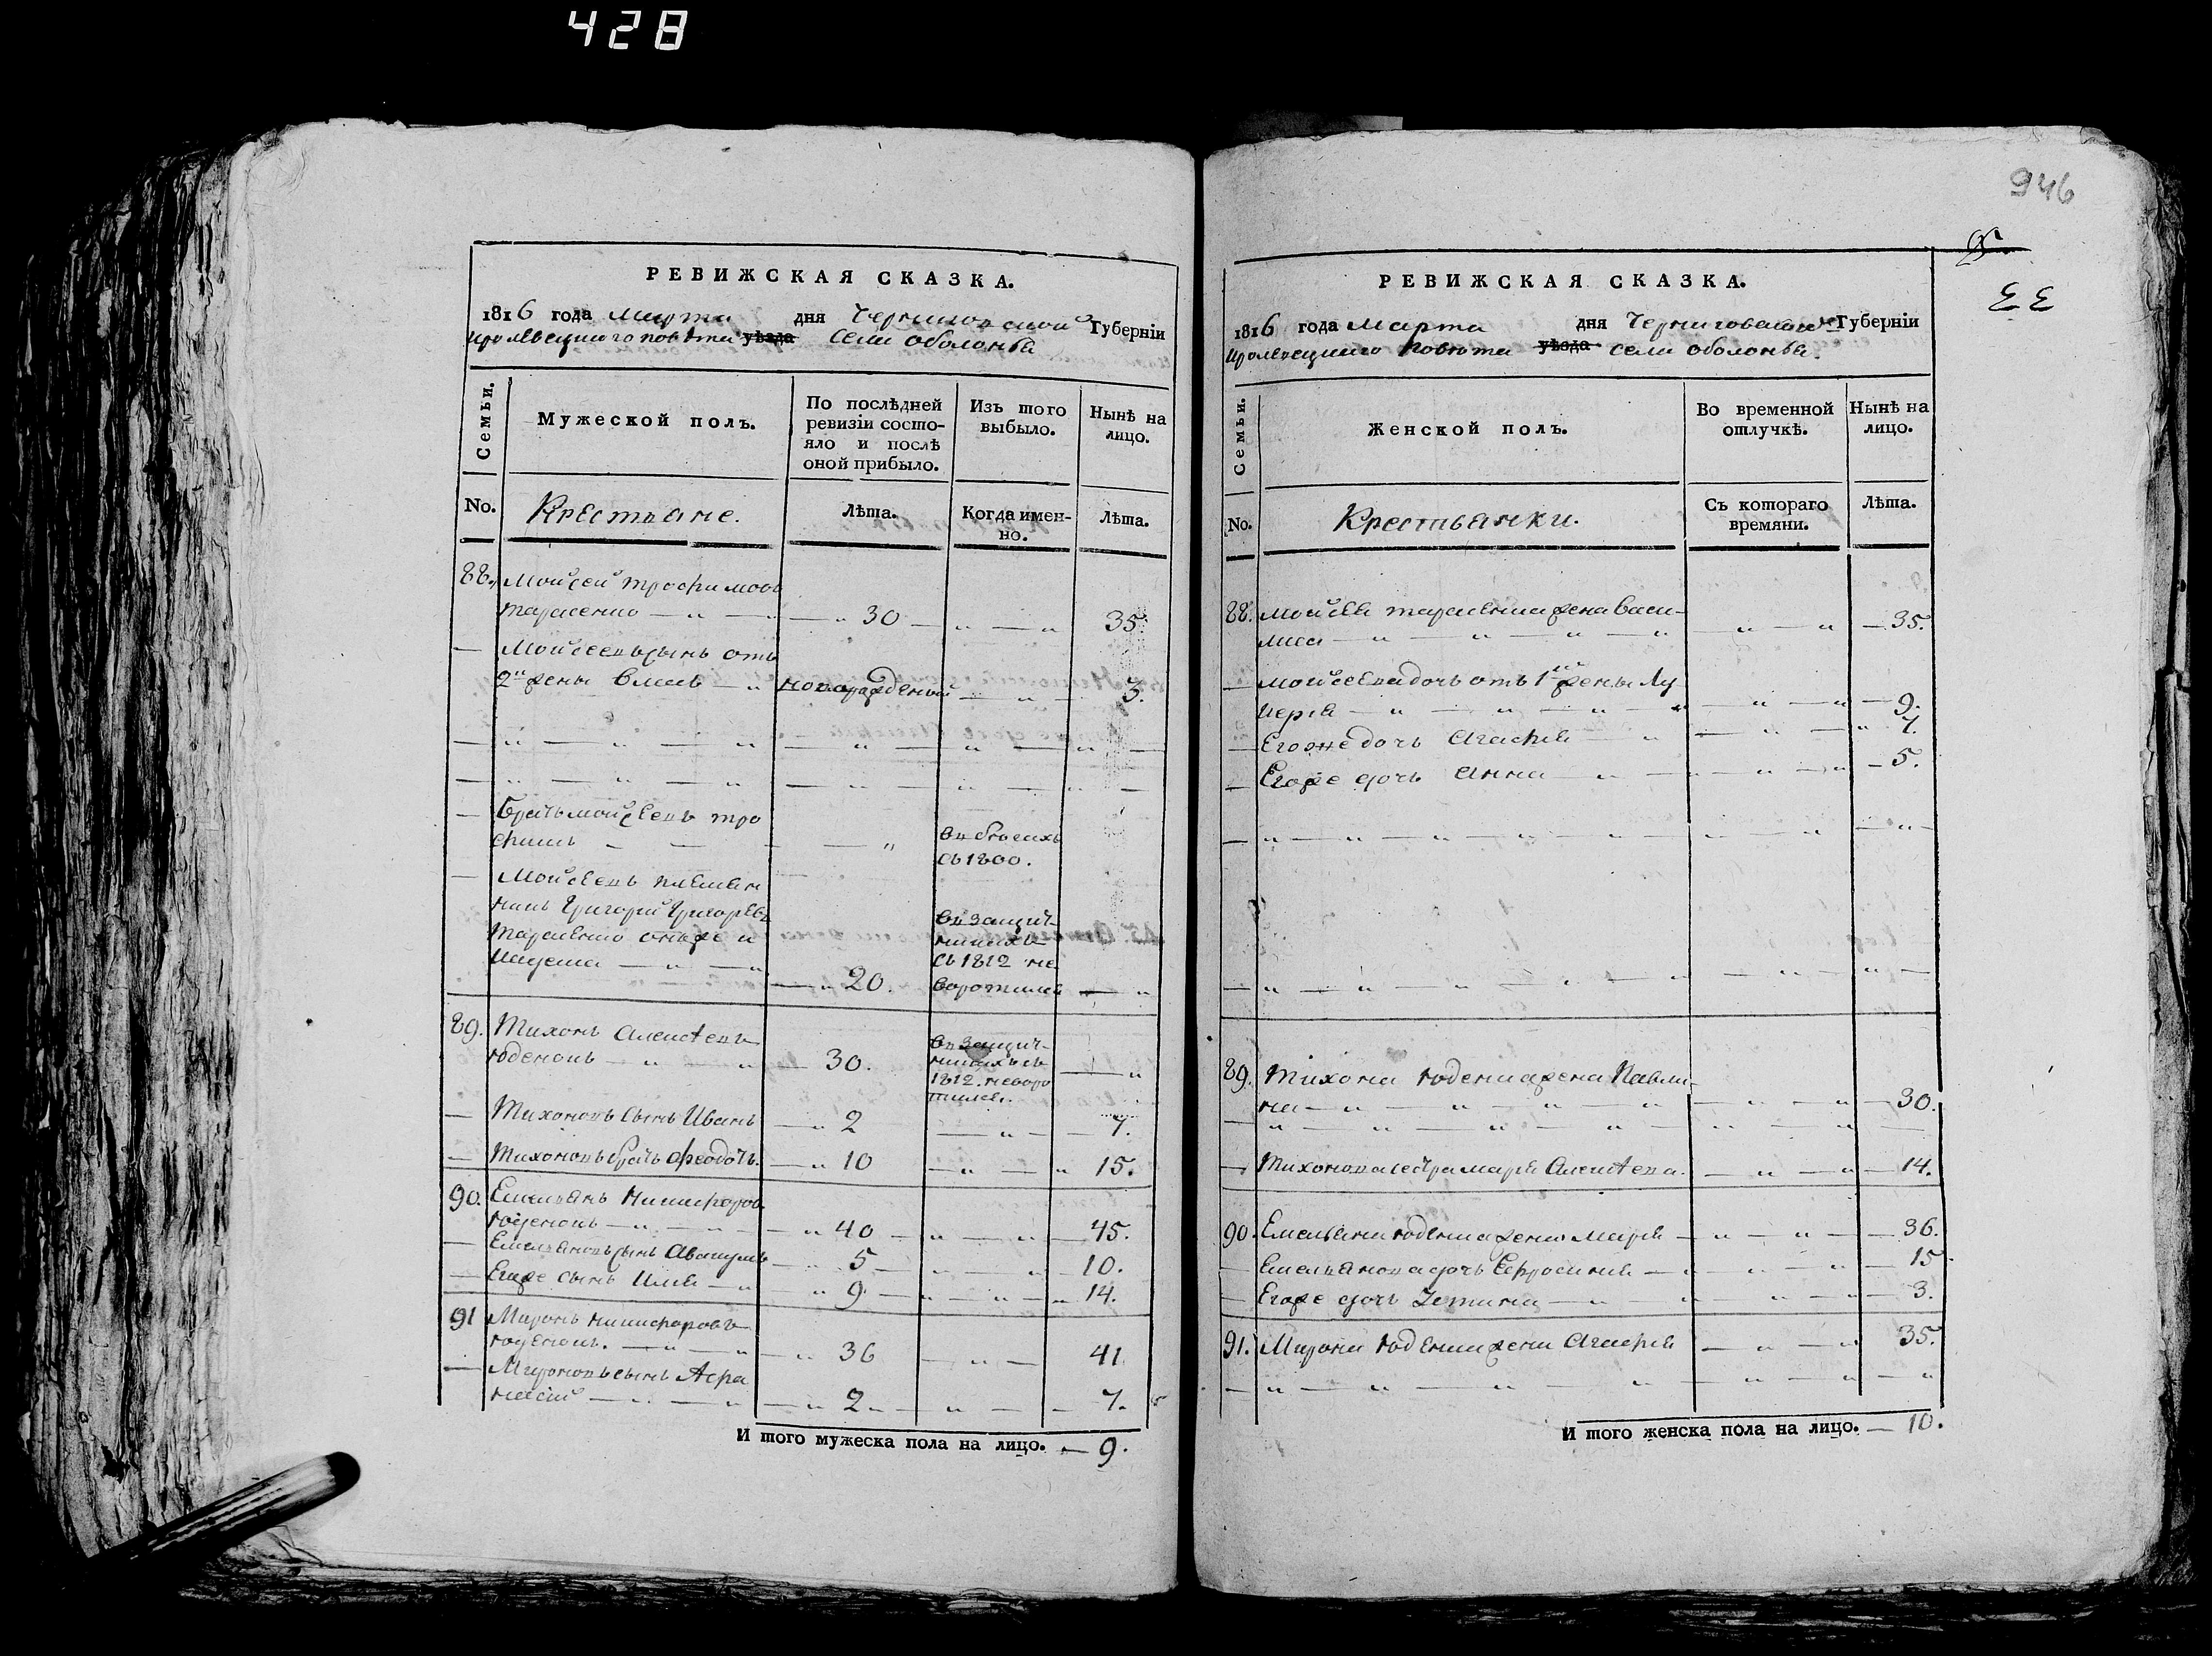 428
946
РЕВИЖСКАЯ СКАЗКА.
1816 года Марта дня Черниговской Губерніи
Кролевецкаго повѣта уѣзда села Оболонья
Семьи.
Мужеской полъ.
По послѣдней ревизіи состояло и послѣ оной прибыло.
Изъ того выбыло.
Нынѣ на лицо.
No. Крестьяне. Лѣта. Когда именно. Лѣта.
88. Мойсей Трофимовъ
Тарасенко 30 35
Мойсеевъ сынъ отъ
2й жены Власъ новорожденный 3.
Братъ Мойсеевъ Тро
фимъ въ бѣгахъ
съ 1800.
Мойсеевъ племен
никъ Григорий Григорьевъ
Тарасенко онъ же и
20.
съ 1812 не
воротился
89. Тихонъ Алексѣевъ
Юденокъ 30.
1812. неворо
тился.
Тихоновъ сынъ Иванъ 2 7.
Тихоновъ братъ Феодотъ. 10 15.
90. Емельянъ Никифоровъ
Юденокъ 40 45.
Емельяновъ сынъ Авакумъ 5 10.
Егоже сынъ Илья 9 14.
91 Миронъ Никифоровъ
Юденокъ. 36 41
Мироновъ сынъ Афа
насій 2 7.
И того мужеска пола на лицо. 9.
РЕВИЖСКАЯ СКАЗКА.
1816 года Марта дня Черниговской Губерніи
Кролевецкаго повѣта уѣзда села Оболонья.
Семьи.
Женской полъ.
Во временной отлучкѣ.
Нынѣ на лицо.
No. Крестьянки. Съ котораго времяни. Лѣта.
88. Мойсея Тарасенка жена Васи-
лиса 35.
Мойсеева дочь отъ 1й жены Лу
керья 9.
Егоже дочь Агафья 7.
Егоже дочь Анна 5.
89. Тихона Юденка жена Павли-
на 30.
Тихонова сестра Марья Алексѣева. 14.
90. Емельяна Юденка жена Марья 36.
Емельянова дочь Ефросинія 15
Егоже дочь 3.
91. Мирона Юденка жена Агафья 35.
И того женска пола на лицо. 10.